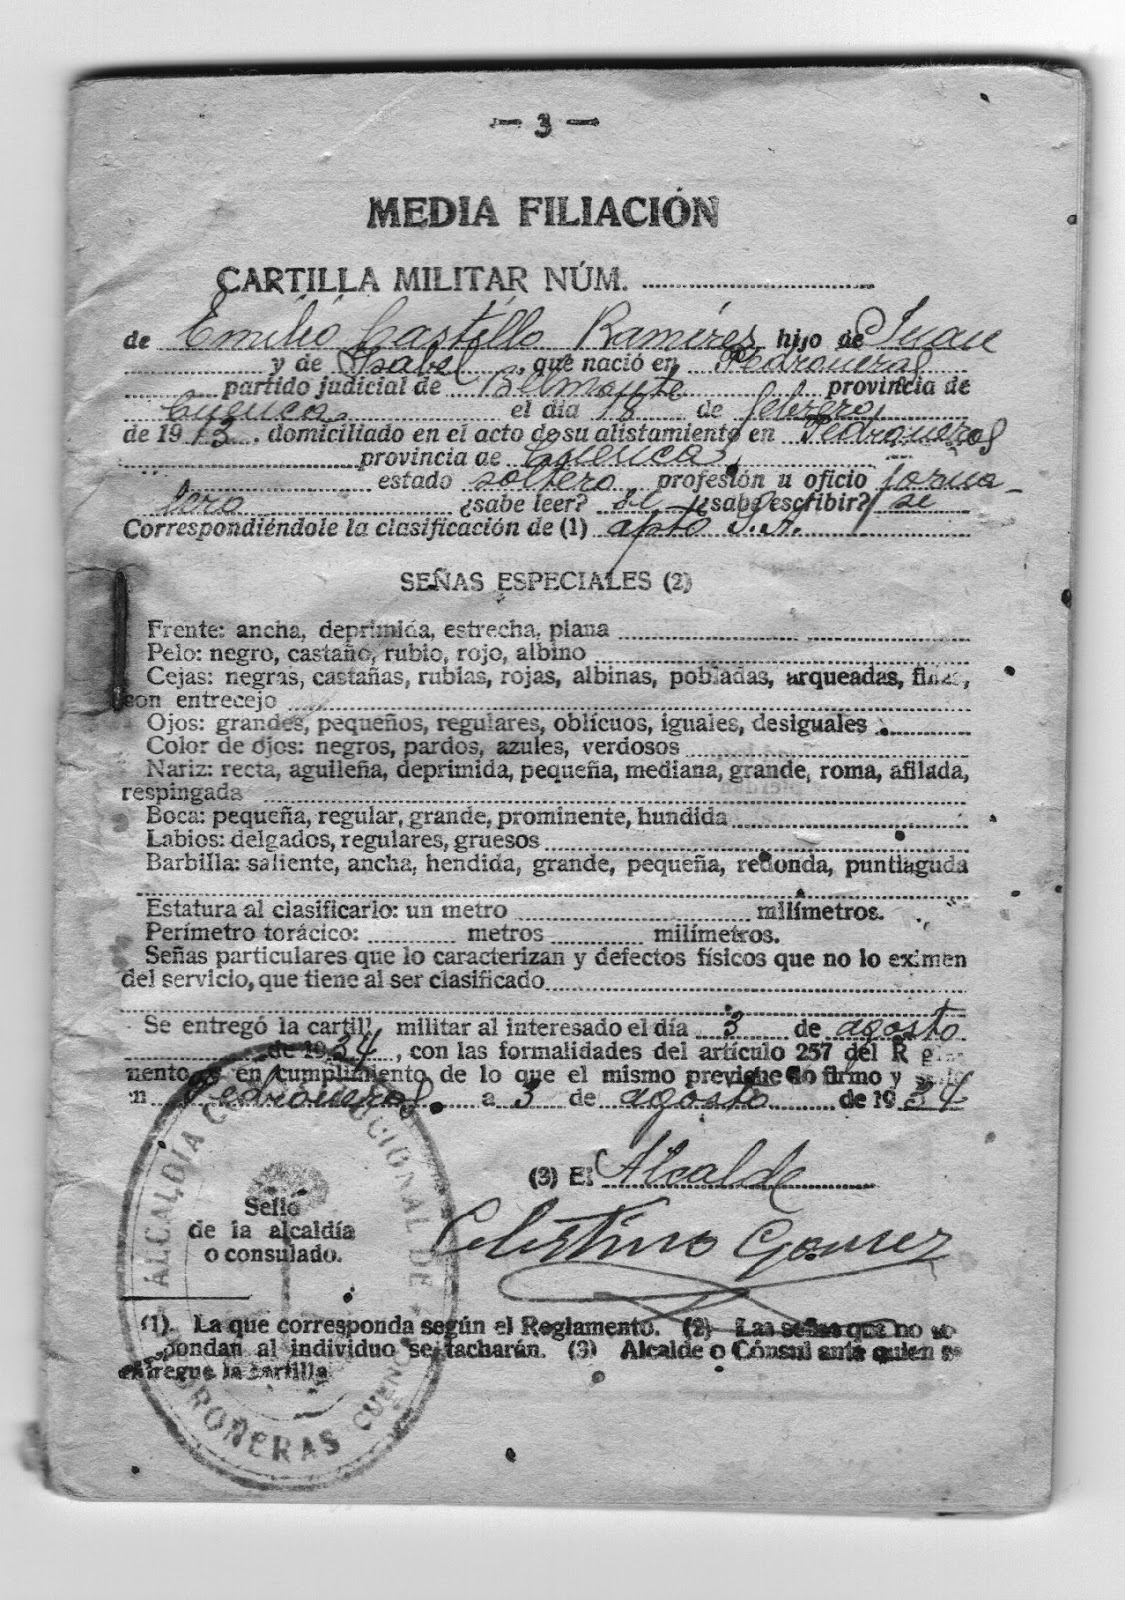 — 3 —
MEDIA FILIACIÓN
CARTILLA MILITAR NÚM.
de Emilio Castillo Ramires hijo de Juan
y de Isabel, que nació en Pedroneras
partido judicial de Belmonte provincia de
Cuenca el día 18 de febrero
de 1913, domiciliado en el acto de su alistamiento en Pedroneras
provincia de Cuenca,
estado soltero profesión u oficio jorna-
lero ¿sabe leer? si ¿sabe escribir? si
Correspondiéndole la clasificación de (1) apto S.A.
SEÑAS ESPECIALES (2)
Frente: ancha, deprimida, estrecha, plana
Pelo: negro, castaño, rubio, rojo, albino
Cejas: negras, castañas, rubias, rojas, albinas, pobladas, arqueadas, finas,
con entrecejo
Ojos: grandes, pequeños, regulares, oblícuos, iguales, desiguales
Color de ojos: negros, pardos, azules, verdosos
Nariz: recta, aguileña, deprimida, pequeña, mediana, grande, roma, afilada,
respingada
Boca: pequeña, regular, grande, prominente, hundida
Labios: delgados, regulares, gruesos
Barbilla: saliente, ancha, hendida, grande, pequeña, redonda, puntiaguda
Estatura al clasificarlo: un metro milímetros.
Perímetro torácico: metros milímetros.
Señas particulares que lo caracterizan y defectos físicos que no lo eximen
del servicio, que tiene al ser clasificado
Se entregó la cartill militar al interesado el día 3 de agosto
de 1934, con las formalidades del artículo 257 del R
mento en cumplimiento de lo que el mismo previene lo firmo y
en Pedroneras a 3 de agosto de 1934
(3) El Alcalde
Sello
de la alcaldía
o consulado.
Celestino Gomez
ALCALDÍA CIONAL DE
DROÑERAS CUENCA
(1) La que corresponda según el Reglamento. (2) Las señas que no
pondan al individuo se tacharán. (3) Alcalde o Cónsul ante quien se
entregue la cartilla